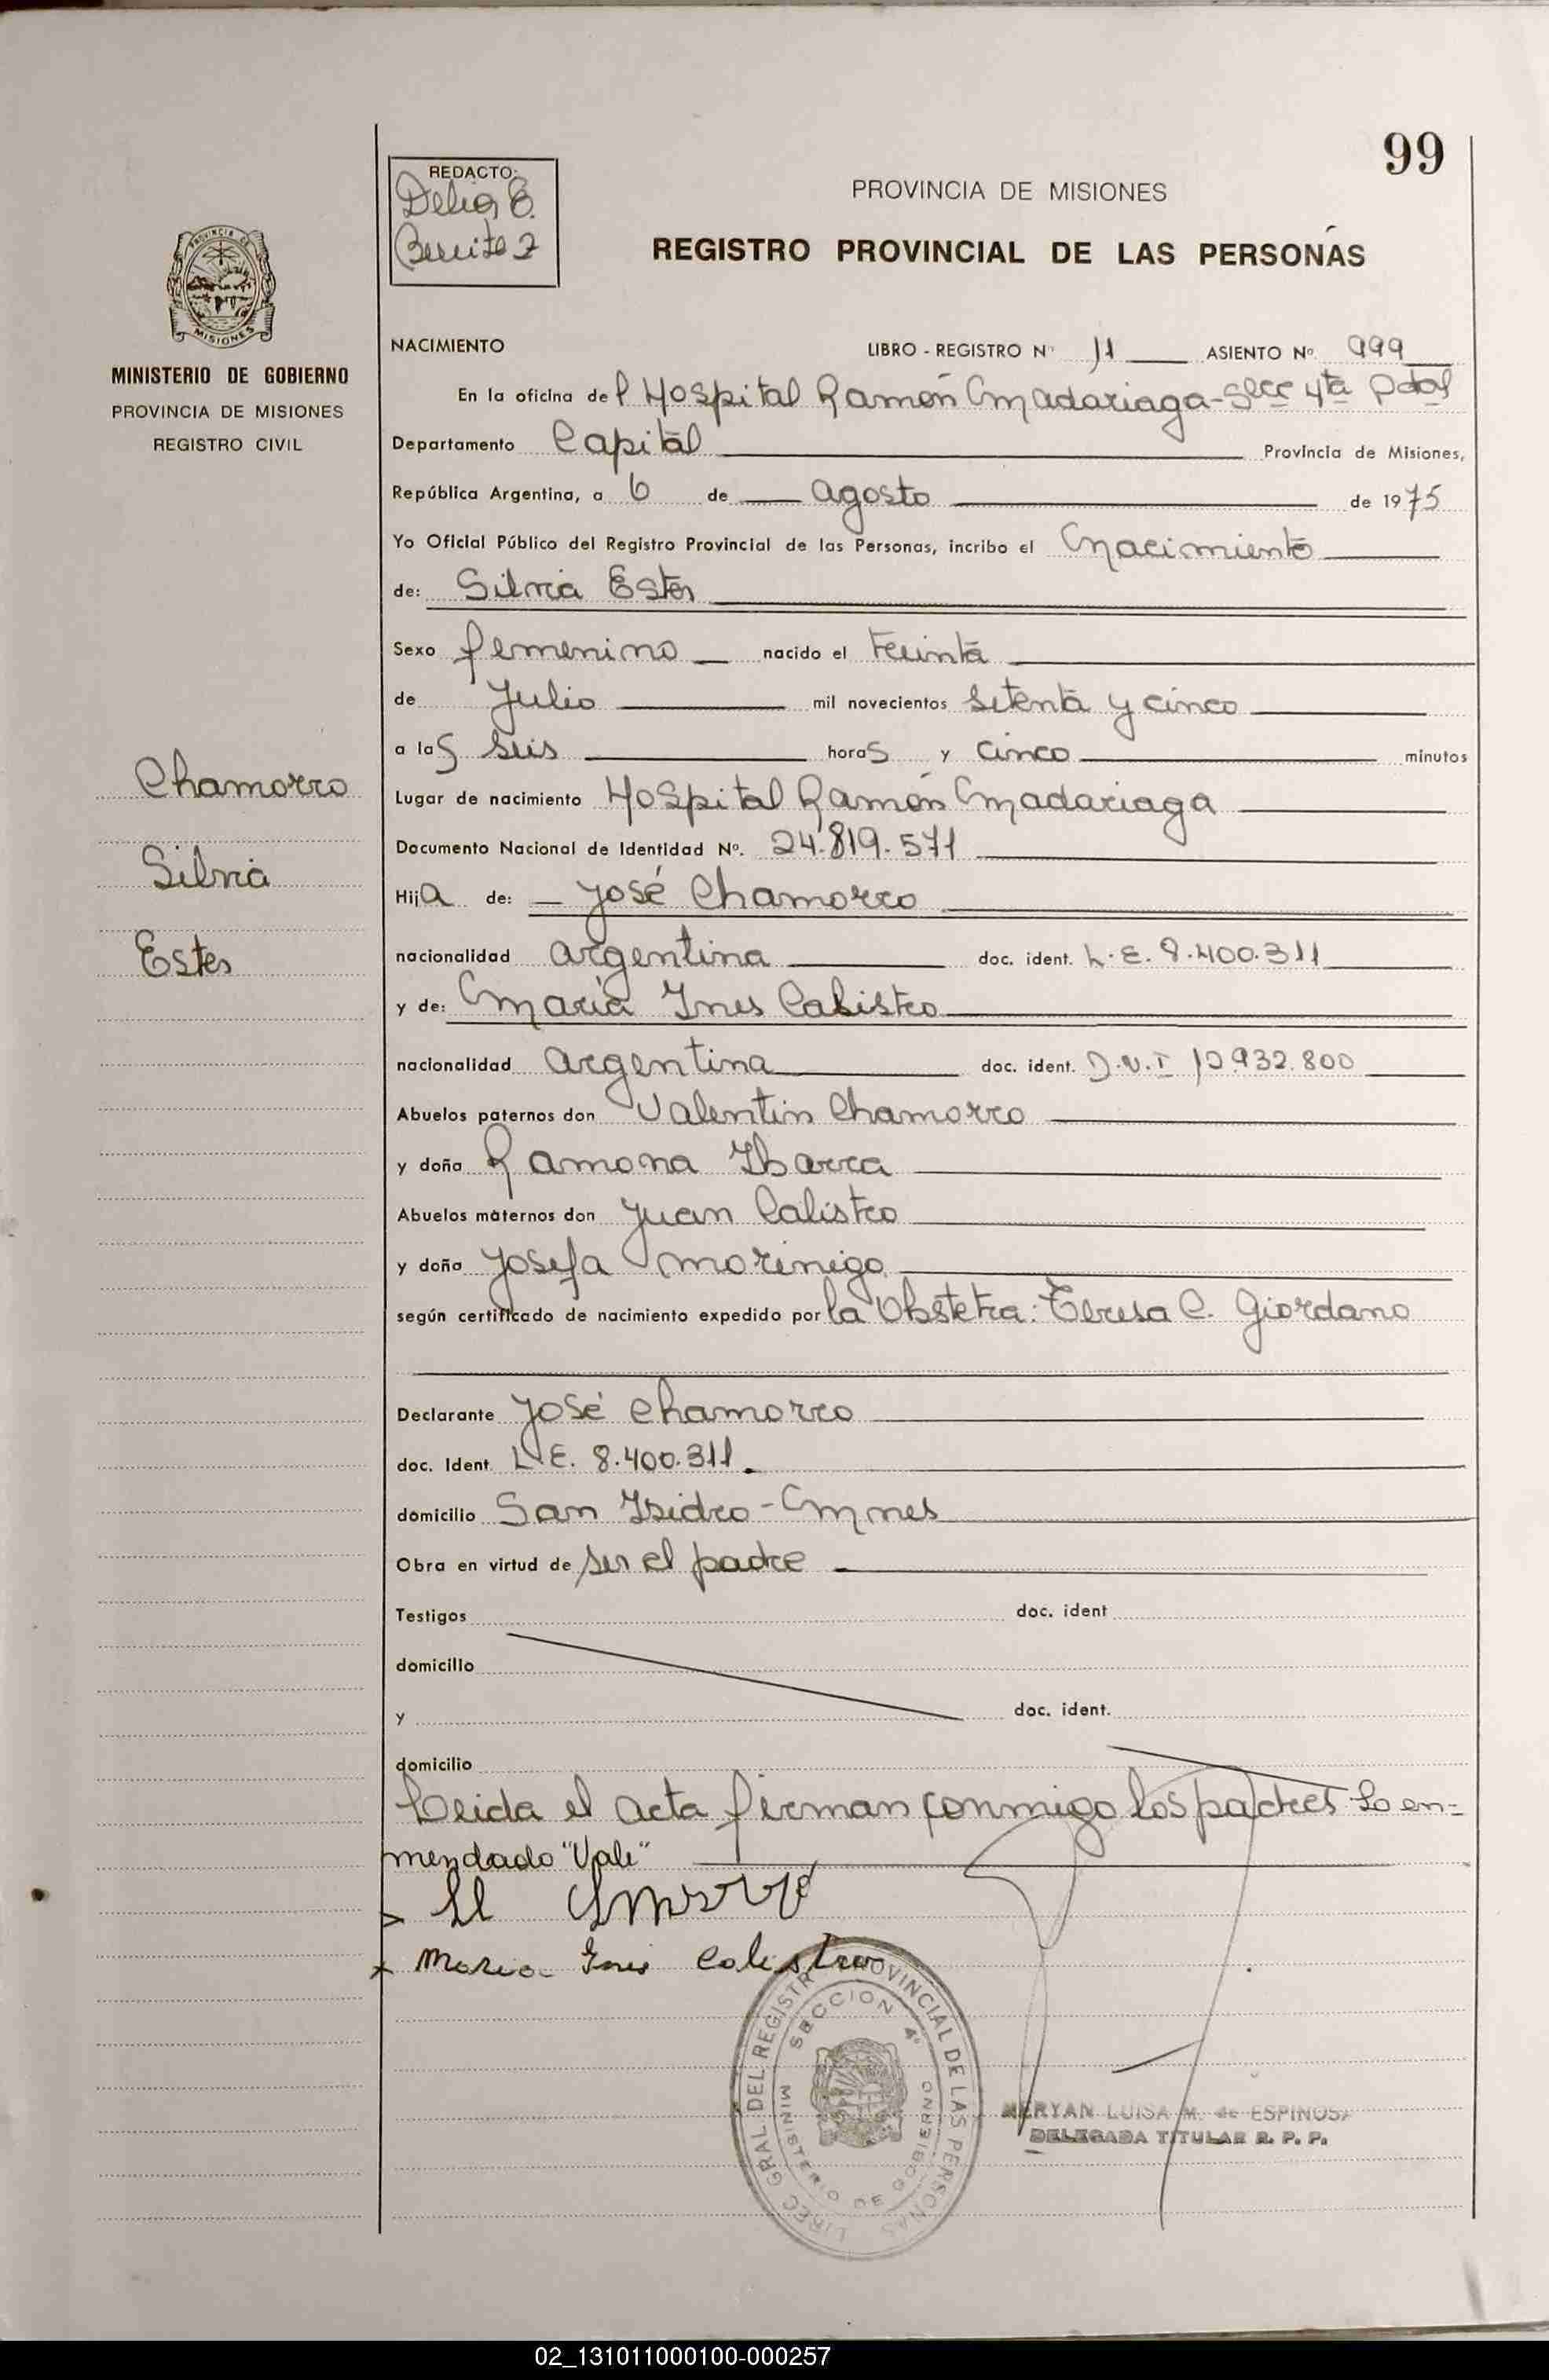 99
REDACTO:
Delia E.
Benitez
PROVINCIA DE MISIONES
REGISTRO PROVINCIAL DE LAS PERSONAS
PROVINCIA DE
MISIONES
MINISTERIO DE GOBIERNO
PROVINCIA DE MISIONES
REGISTRO CIVIL
NACIMIENTO LIBRO - REGISTRO Nº 11 ASIENTO Nº 999
En la oficina del Hospital Ramón Madariaga - Secc 4ta Pdas
Departamento Capital Provincia de Misiones,
República Argentina, a 6 de agosto de 1975
Yo Oficial Público del Registro Provincial de las Personas, incribo el Nacimiento
de: Silvia Ester
Sexo femenino nacido el treinta
de Julio mil novecientos setenta y cinco
a las seis horas y cinco minutos
Chamorro
Silvia
Ester
Lugar de nacimiento Hospital Ramón Madariaga
Documento Nacional de Identidad Nº. 24.819.571
Hija de: José Chamorro
nacionalidad argentina doc. ident. L.E. 8.400.311
y de: María Ines Calistro
nacionalidad argentina doc. ident. D.N.I 12.932.800
Abuelos paternos don Valentin Chamorro
y doña Ramona Ibarra
Abuelos maternos don Juan Calistro
y doña Josefa Morinigo
según certificado de nacimiento expedido por la Obstetra: Teresa C. Giordano
Declarante José Chamorro
doc. Ident. L.E. 8.400.311
domicilio San Isidro - Mnes
Obra en virtud de ser el padre
Testigos doc. ident
domicilio
y doc. ident.
domicilio
Leida el acta firman conmigo los padres Lo en-
mendado "Vale"
Maria Ines Calistro
DIREC GRAL DEL REGISTRO PROVINCIAL DE LAS PERSONAS
SECCION 4ª
MINISTERIO DE GOBIERNO
MERYAN LUISA M. de ESPINOSA
DELEGADA TITULAR R. P. P.
02_131011000100-000257